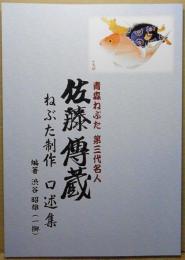 青森ねぶた 第三代名人
佐藤傳蔵
ねぶた制作 口述集
編著 渋谷 昭雄（一擲）